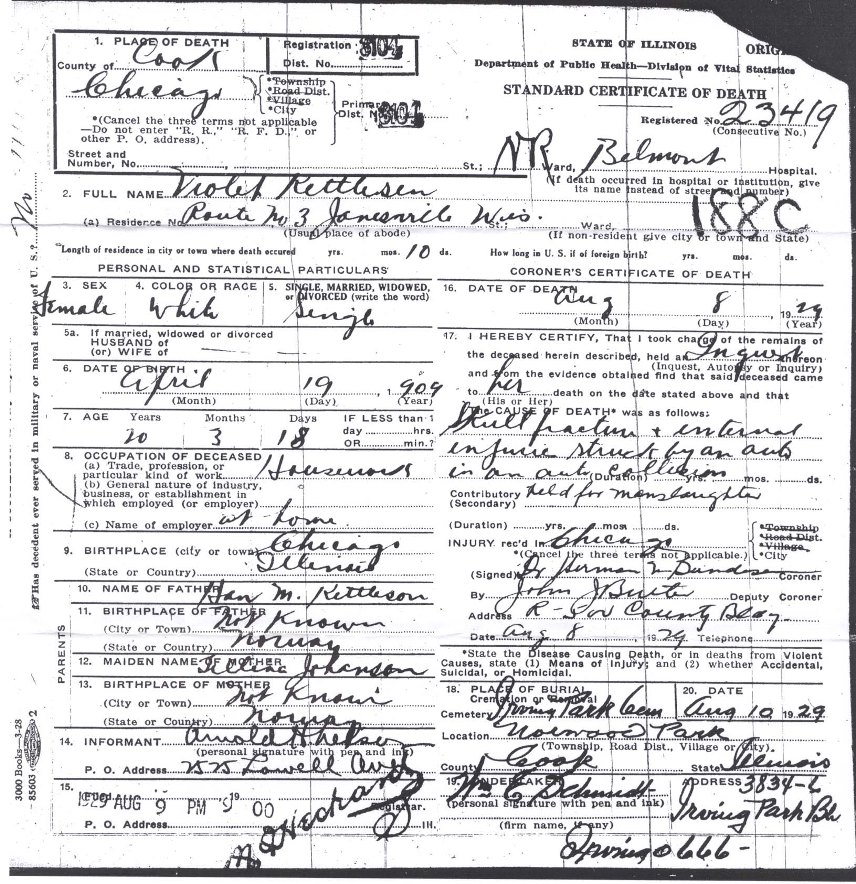 STATE OF ILLINOIS ORIG
Department of Public Health—Division of Vital Statistics
STANDARD CERTIFICATE OF DEATH
Registered No. 23419
(Consecutive No.)
1. PLACE OF DEATH
Registration Dist. No. 3104
County of Cook
Chicago
*Township
*Road Dist.
*Village
*City
Primary Dist. No. 3104
*(Cancel the three terms not applicable
—Do not enter "R. R.," "R. F. D.," or
other P. O. address).
Street and
Number, No. St.; NR Ward, Belmont Hospital.
(If death occurred in hospital or institution, give
its name instead of street and number)
2. FULL NAME Violet Kettleson
188C
(a) Residence No. Route No 3 Janesville Wis. St.; Ward,
(Usual place of abode) (If non-resident give city or town and State)
Length of residence in city or town where death occured yrs. mos. 10 ds. How long in U. S. if of foreign birth? yrs. mos. ds.
PERSONAL AND STATISTICAL PARTICULARS
3. SEX 4. COLOR OR RACE 5. SINGLE, MARRIED, WIDOWED,
or DIVORCED (write the word)
Female White Single
5a. If married, widowed or divorced
HUSBAND of
(or) WIFE of
6. DATE OF BIRTH
April 19 1909
(Month) (Day) (Year)
7. AGE Years Months Days IF LESS than 1
day hrs.
OR min.?
20 3 18
8. OCCUPATION OF DECEASED
(a) Trade, profession, or
particular kind of work Housework
(b) General nature of industry,
business, or establishment in
which employed (or employer)
(c) Name of employer at home
9. BIRTHPLACE (city or town) Chicago
(State or Country) Illinois
PARENTS
10. NAME OF FATHER Han M. Kettleson
11. BIRTHPLACE OF FATHER
(City or Town) Not Known
(State or Country) Norway
12. MAIDEN NAME OF MOTHER Johanson
13. BIRTHPLACE OF MOTHER
(City or Town) Not Known
(State or Country) Norway
14. INFORMANT Arnold
(personal signature with pen and ink)
P. O. Address Lowell Ave
15. Filed 1929 AUG 9 PM 9 00
Registrar.
P. O. Address Ill.
CORONER'S CERTIFICATE OF DEATH
16. DATE OF DEATH
Aug 8 1929
(Month) (Day) (Year)
17. I HEREBY CERTIFY, That I took charge of the remains of
the deceased herein described, held an Inquest thereon
(Inquest, Autopsy or Inquiry)
and from the evidence obtained find that said deceased came
to her death on the date stated above and that
(His or Her)
The CAUSE OF DEATH* was as follows:
Skull fracture & internal
injurie struck by an auto
in an auto collision
(Duration) yrs. mos. ds.
Contributory held for manslaughter
(Secondary)
(Duration) yrs. mos. ds.
INJURY rec'd in Chicago
*Township
*Road Dist.
*Village
*City
*(Cancel the three terms not applicable.)
(Signed) Dr Herman N Bundesen Coroner
By John J Deputy Coroner
Address County Bldg.
Date Aug 8, 1929 Telephone
*State the Disease Causing Death, or in deaths from Violent
Causes, state (1) Means of Injury; and (2) whether Accidental,
Suicidal, or Homicidal.
18. PLACE OF BURIAL
Cremation or Removal
20. DATE
Cemetery Irving Park Cem Aug 10 1929
Location Norwood Park
(Township, Road District, Village or City).
County Cook State Illinois
19. UNDERTAKER ADDRESS 3834-6
Wm C Schmidt Irving Park Blv
(personal signature with pen and ink)
(firm name, if any)
Irving 0666-
Has decedent ever served in military or naval service of U. S.? No
3000 Books—3-28
85603 2